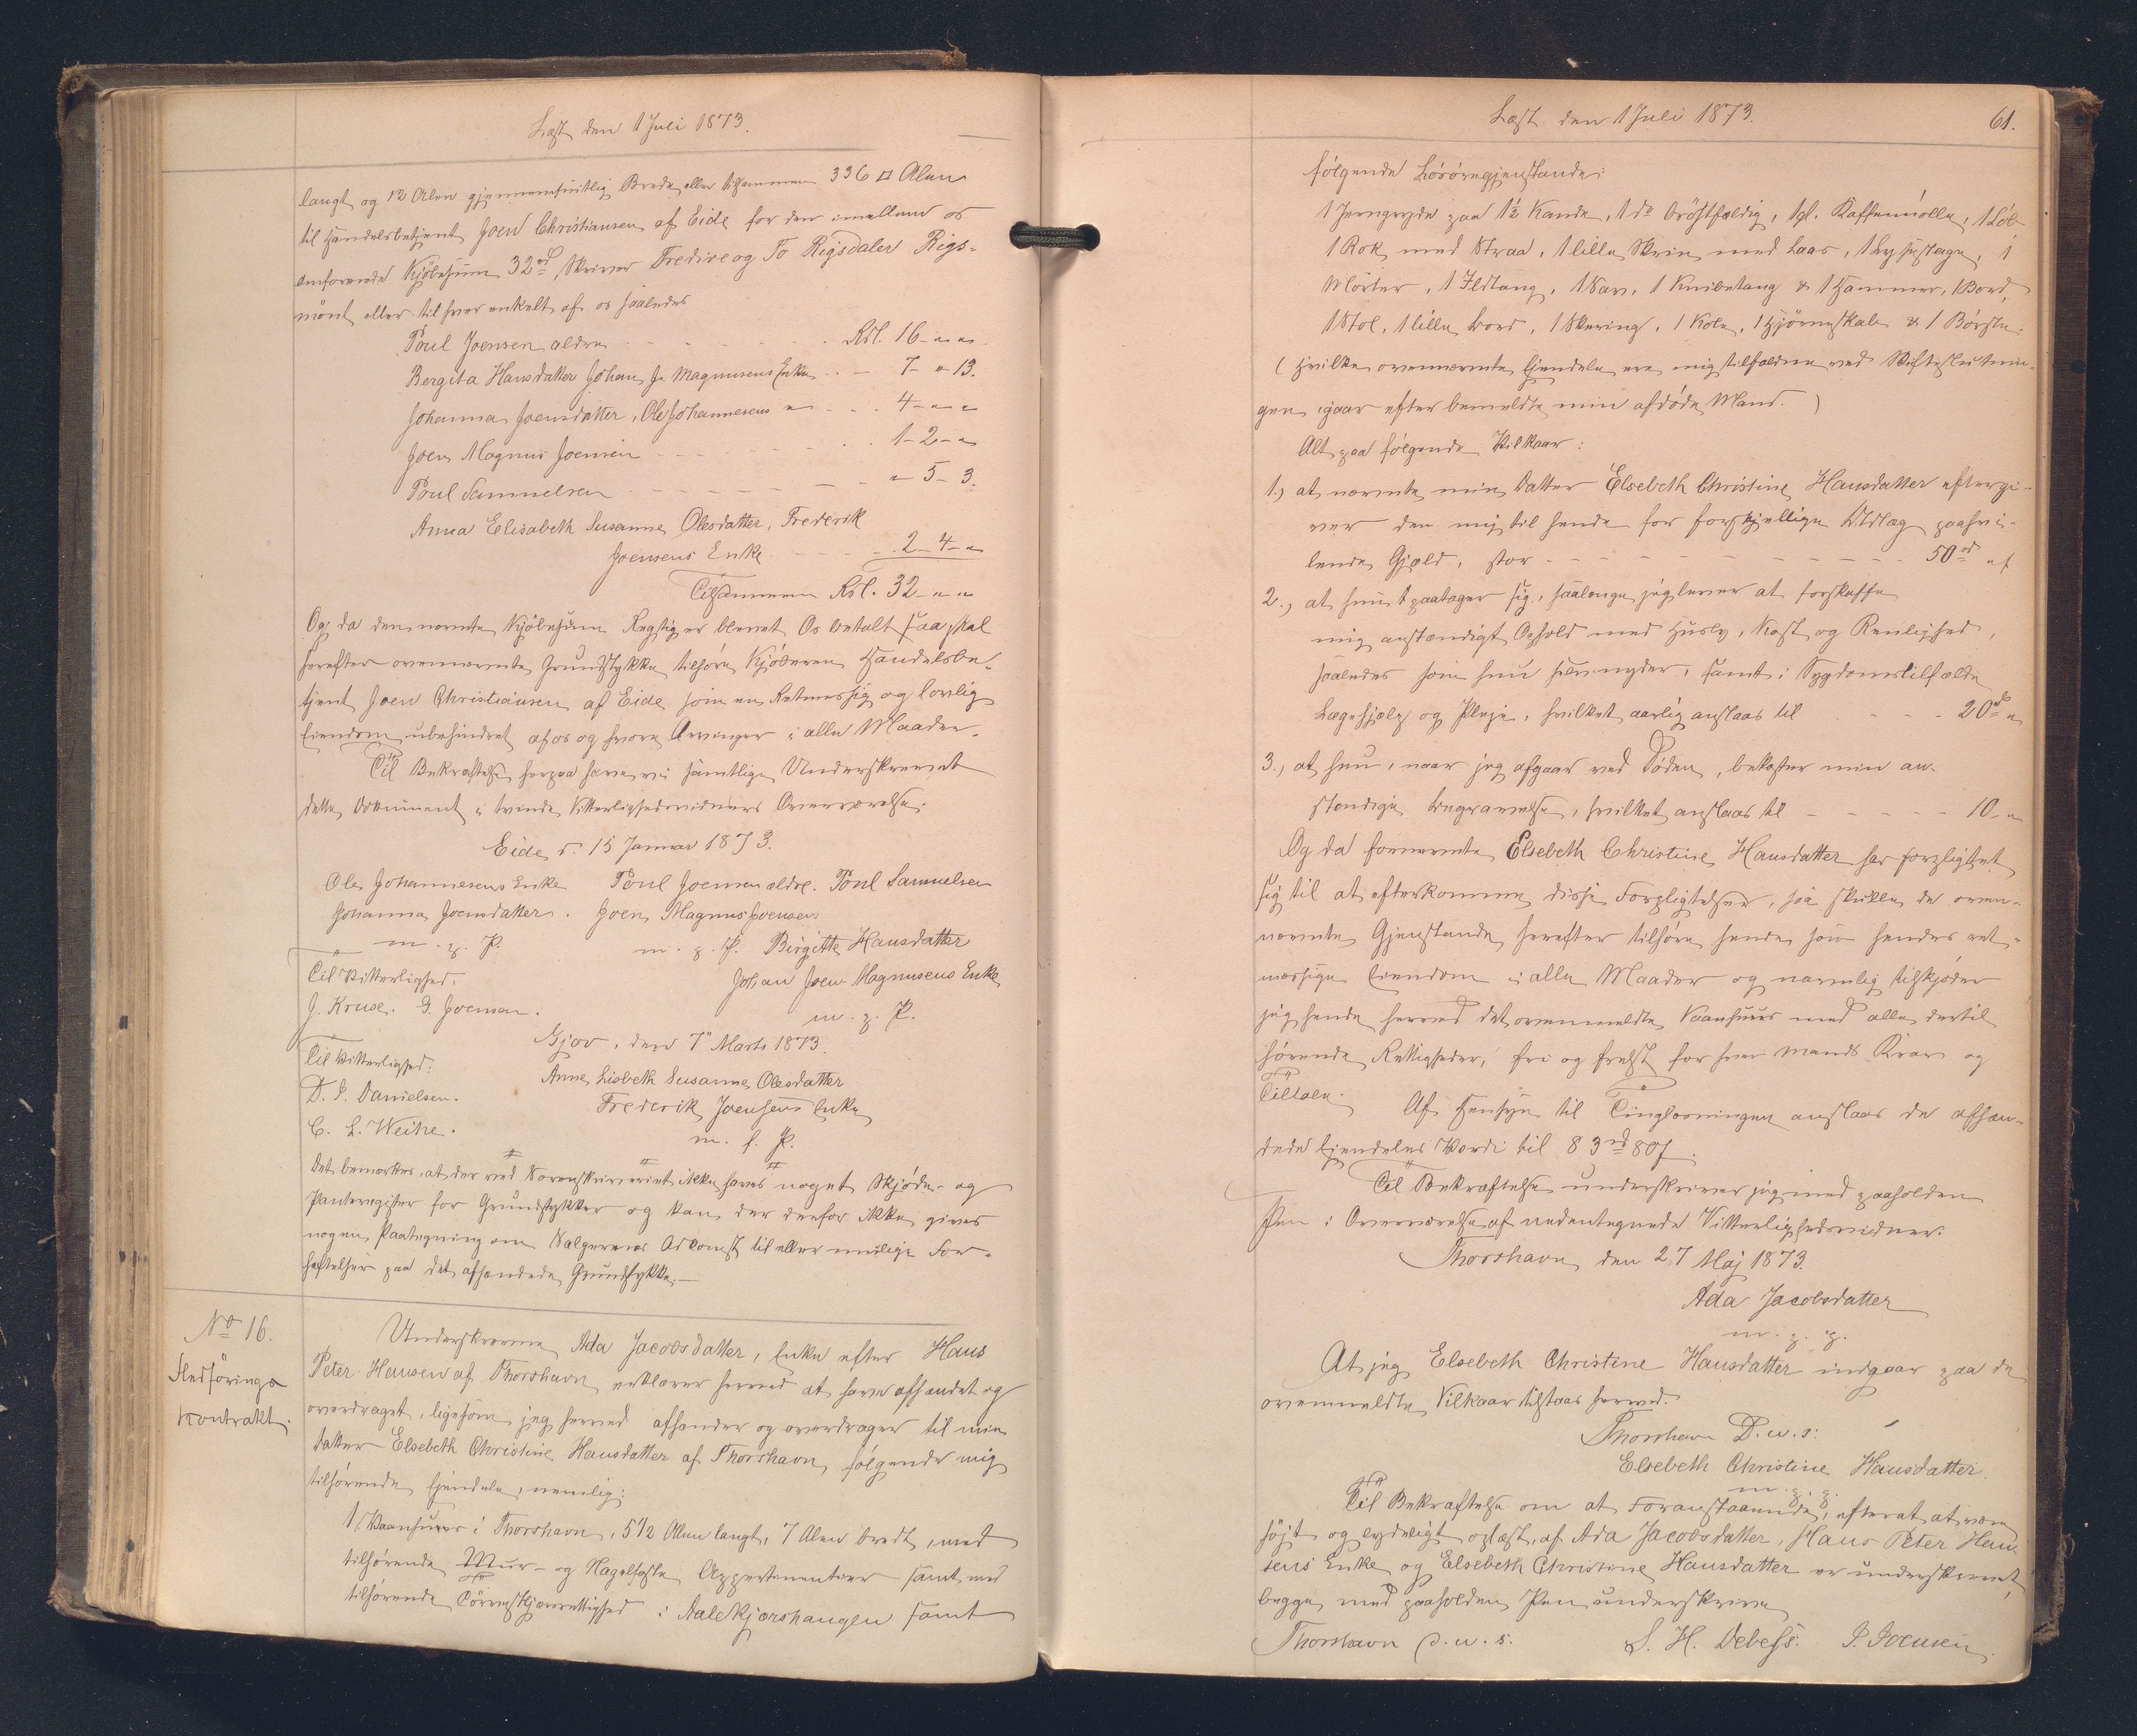 Læst den 1 Juli 1873.
langt og 12 Alen gjennemsnitlig Brede, eller tilsammen 336 □ Alen
til Handelsbetjent Joen Christiansen af Eide for den imellem os
omforenede Kjöbesum 32 rd, skriver Tredive og To Rigsdaler Rigs-
mönt eller til hver enkelt af os saaledes
Poul Joensen ældre - - - - - - Rdl. 16 - " "
Bergita Hansdatter Johan J. Magnusens Enke - - - 7 - " 13.
Johanna Joensdatter, Ole Johannesens " - - - 4 - " "
Joen Magnus Joensen - - - 1 - 2 - "
Poul Samuelsen - - - - - - " - 5 - 3.
Anna Elisabeth Susanne Olesdatter, Frederik
Joensens Enke - - - - 2 - 4 - "
Tilsammen Rdl. 32 - " "
Og da den nævnte Kjöbesum rigtig er blevet Os betalt saa skal
herefter ovennævnte Grundstykke tilhöre Kjöberen Handelsbe-
tjent Joen Christiansen af Eide som en Retmessig og lovlig
Eiendom ubehindret af os og hvore Arvinger i alle Maader.
Til Bekræftelse herpaa have vi samtlige Underskrevet
dette Dokument i tvende Vitterlighedsvidners Overværelse.
Eide d. 15 Januar 1873.
Ole Johannesens Enke Poul Joensen ældre. Poul Samuelsen
Johanna Joensdatter. Joen Magnus Joensen
m. p. P. m. p. P. Birgitte Hansdatter
Til Vitterlighed. Johan Joen Magnusens Enke
J. Kruse. G. Joensen. m. p. P.
Gjov, den 7" Marts 1873.
Til Vitterlighed: Anne Lisbeth Susanne Olesdatter
D. P. Danielsen. Frederik Joensens Enke
C. L. Weihe. m. f. P.
Det bemærkes, at der ved Sorenskriveriet ikke haves noget Skjöde- og
Panteregister for Grundstykker og kan der derfor ikke gives
nogen Paategning om Sælgerens Adkomst til eller mulige For-
hæftelser paa det afhændede Grundstykke. —
No 16.
Ledförings
Kontrakt.
Underskrevne Ada Jacobsdatter, Enke efter Hans
Peter Hansen af Thorshavn erklærer herved at have afhændet og
overdraget, ligesom jeg herved afhænder og overdrager til min
Datter Elsebeth Christine Hansdatter af Thorshavn, fölgende mig
tilhörende Ejendele, nemlig:
1 Vaanhuus i Thorshavn, 5 1/2 Alen langt, 7 Alen bredt, med
tilhörende Mur- og Nagelfaste Appertinentier samt med
tilhörende Törveskjærrettighed i Aalekjærshaugen samt
Læst den 1 Juli 1873.
61.
fölgende Lösöregjenstande:
1 Jerngryde paa 1½ Kande, 1 do bröstfældig, 1 gl. Kaffemölle, 1 Löb
1 Rok med Traad, 1 lille Skrin med Laas, 1 Lysestage, 1
Morter, 1 Ildtang, 1 Nav, 1 Knibetang & 1 Hammer, 1 Bord,
1 Stol, 1 lille Bord, 1 Skering, 1 Kole, 1 Hjörneskab & 1 Börste.
(hvilke ovennævnte Ejendele ere mig tilfaldne ved Skifteslutnin-
gen igaar efter bemeldte min afdöde Mand.)
Alt paa fölgende Vilkaar:
1.) at nævnte min Datter Elsebeth Christine Hansdatter eftergi-
ver den mig til hende for forskjellige Udlæg paahvi-
lende Gjæld, stor - - - - - - - - 50 rd "
2.) at hun paatager sig, saalænge jeg lever at forskaffe
mig anstændigt Ophold med Husly, Kost og Renlighed,
saaledes som hun selv nyder, samt i Sygdomstilfælde
Lægehjælp og Pleje, hvilket aarlig anslaas til - - - 20 rd "
3.) at hun, naar jeg afgaar ved Döden, bekoster min an-
stændige Begravelse, hvilket anslaas til - - - - - 10 - "
Og da fornævnte Elsebeth Christine Hansdatter har forpligtet
sig til at efterkomme disse Forpligtelser, saa skulle de oven-
nævnte Gjenstande herefter tilhöre hende som hendes ret-
mæssige Eiendom i alle Maader og navnlig tilskjöder
jeg hende herved det ovenmeldte Vaanhuus med alle dertil
hörende Rettigheder, fri og frelst for hver Mands Krav og
Tiltale. Af Hensyn til Tinglæsningen anslaas de afhæn-
dede Ejendeles Værdi til 83 rd 80 f.
Til Bekræftelse underskriver jeg med paaholden
Pen i Overværelse af nedentegnede Vitterlighedsvidner.
Thorshavn den 27 Maj 1873.
Ada Jacobsdatter
m. p. p.
At jeg Elsebeth Christine Hansdatter indgaar paa de
ovenmeldte Vilkaar tilstaas herved.
Thorshavn D. u. s.
Elsebeth Christine Hansdatter.
m. p. p.
Til Bekræftelse om at Foranstaaende, efterat at være
höjt og lydeligt oplæst, af Ada Jacobsdatter, Hans Peter Han-
sens Enke og Elsebeth Christine Hansdatter er underskrevet,
begge med paaholden Pen underskrive
Thorshavn D. u. s. S. H. Debess. P. Joensen.